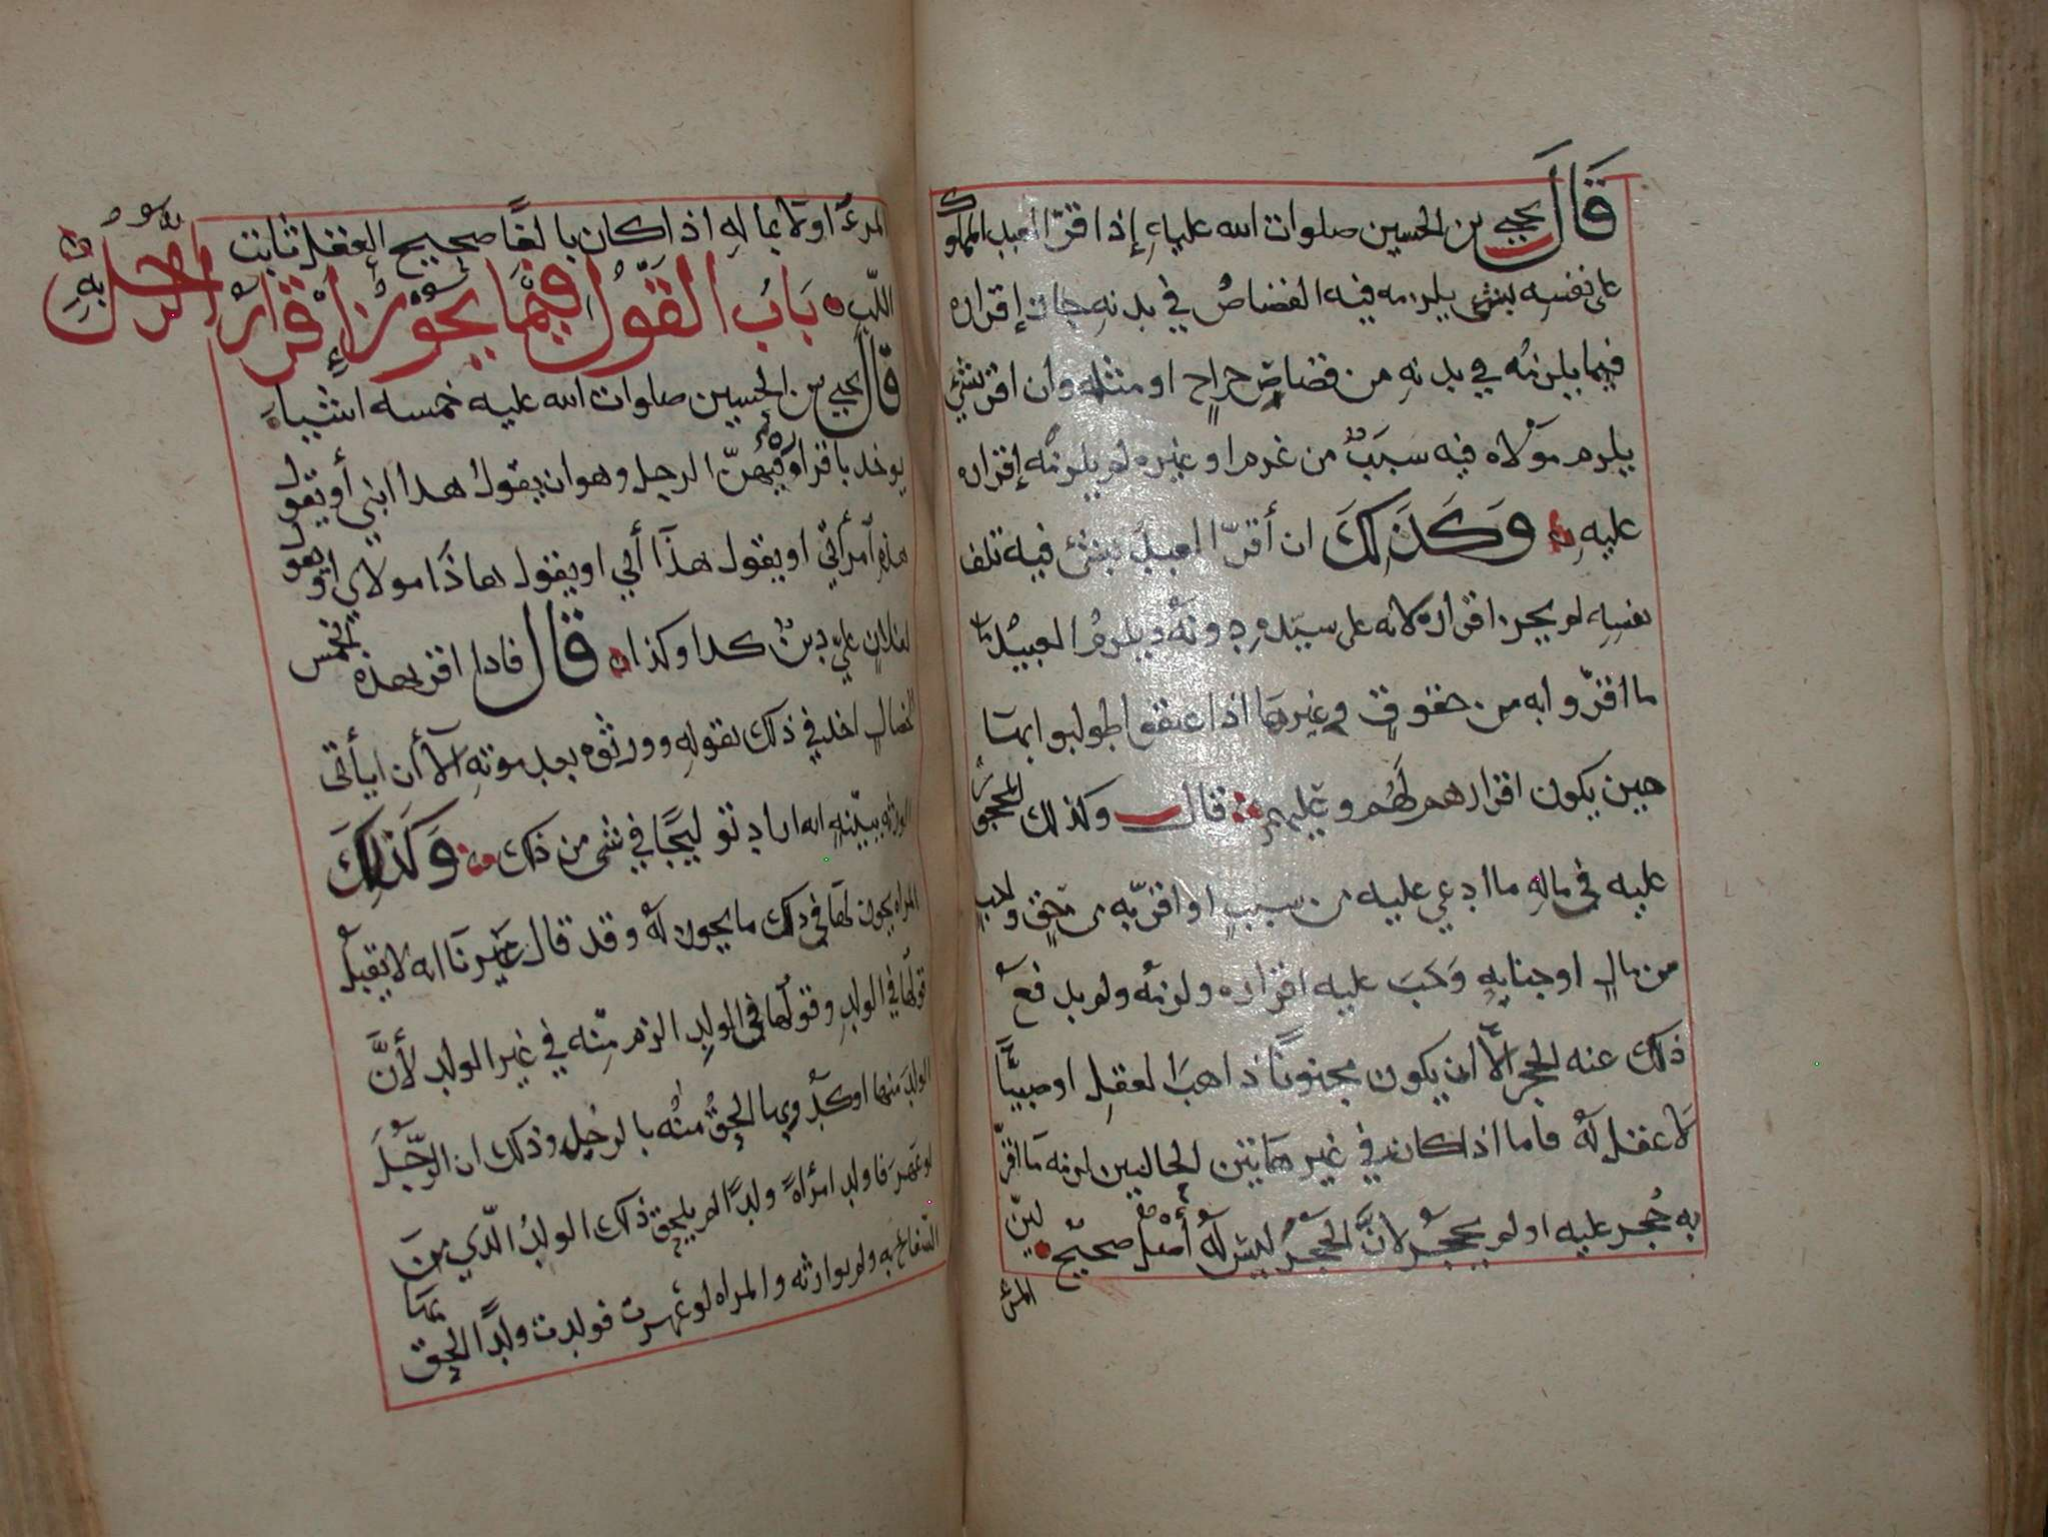 قَالَ يحيى بن الحسين صلوات الله عليهِ إذا اقرّ العبد المملوك
على نفسِه بشيء يلزمه فيه القصاصُ في بدنهِ جاز إقراره
فيما يلزمُه في بدنهِ من قصاصٍ جراحٍ او مثله وان اقر بشيءٍ
يلزم مَولاه فيه سَبَبٌ من غرم او غيره لم يلزمُه إقراره
عليهِ وَكَذَلِكَ ان أقرّ العبدُ بشيء فيه تلف
نفسِه لم يجز اقراره لانه على سيّدهِ دونهُ ويلزمُ العبيدُ
ما اقرّوا به من حقوقٍ وغيرها اذا عتقوا طولبوا بها
حين يكون اقرارهم لَهُم وعليهم قال وكذلك المحجور
عليه في مالهِ ما ادعي عليه من سببٍ او اقرّ به من حقٍ وجب
من مالٍ او جنايهٍ وَجَبَ عليه اقراره ولزمهُ ولم يدفع
ذلك عنه الحجر الّا ان يكون مجنونًا ذاهبَ العقلِ او صبيًّا
لا عقل لهُ فاما اذا كان في غير هَاتين الحالتين لزمه مَا اقرّ
به حُجِر عليه او لم يحجَرْ لانَّ الحجرَ ليسَ لهُ صحيحٌ
المرء
المرءُ اولا بمالهِ اذا كان بالغًا صحيح العقل ثابت
اللّبِ بَابُ القَوْلِ فِيْمَا يجُوْزُ إِقْرَارُ الرجُلِ بهِ
قَالَ يحيى بن الحسين صلوات الله عليه خمسه اشياءَ
يوخذ باقراره فيهنّ الرجل وهو ان يقولَ هذا ابني أو يقول
هذهِ آمرأتي او يقول هذا أبي او يقول هاذَا مولاي او يقول
لفلانٍ عليّ دينٌ كذا وكذا قَالَ فاذا اقر بهذه الخمس
الخصالِ اخذ في ذلك بقولهِ وورثوه بعد موتهِ الّا أن يأتي
الورثه ببيّنهٍ انه اراد توليجًا في شي من ذلك وَكَذلِكَ
المراه يجوز لهَا في ذلك ما يجوز لهُ وقد قال غَيرنَا انه لا يقبل
قولها في الولدِ وقولُها في الولدِ الزم مِنْه في غير الولد لأنَّ
الولدَ منها اوكدُ وبها الحقُ منْهُ بالرجلِ وذلك ان الرّجُلَ
لو عَهَرَ فاولد امرأةً ولدًا لم يلحق ذلك الولدُ الّذي من
السّفاحِ به ولم يوارثه والمراه لو عَهرت فولدت ولدًا الحق بها